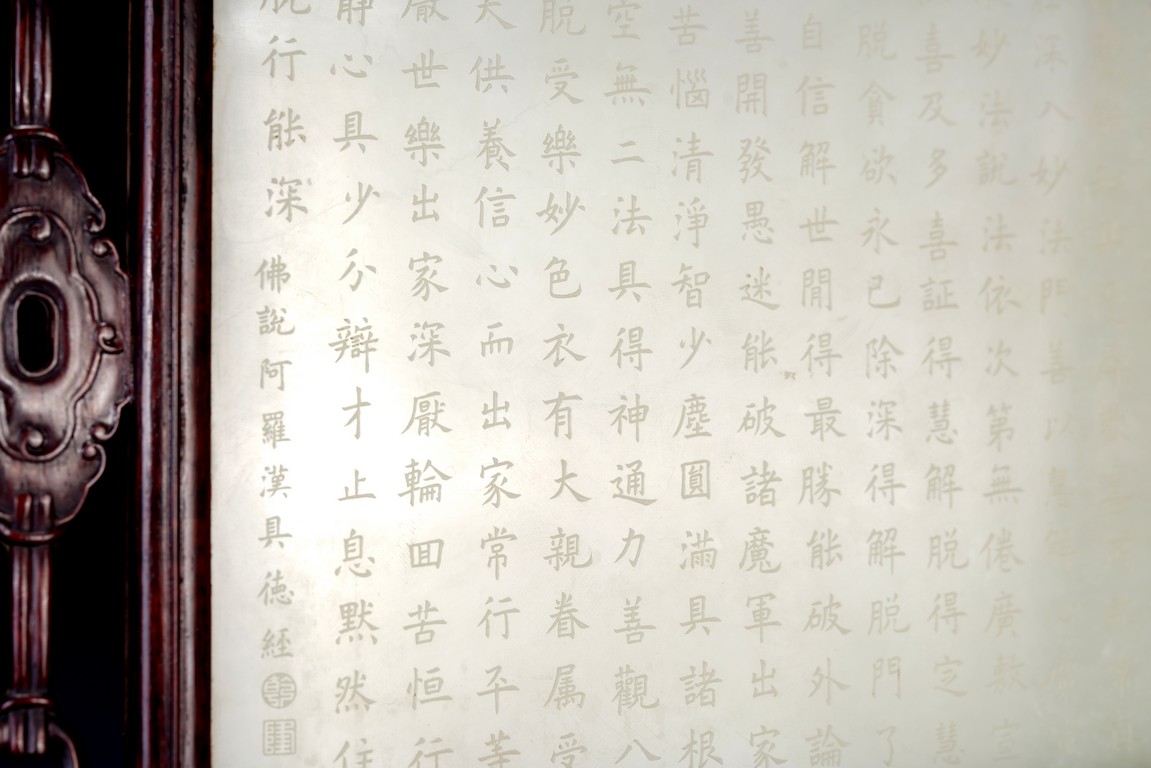 深入妙法門善以
妙法說法依次第無倦廣敷
喜及多喜証得慧解脱得定慧
脱貪欲永已除深得解脱門了
自信解世間得最勝能破外論
善開發愚迷能破諸魔軍出家
苦惱清淨智少塵圓滿具諸根
空無二法具得神通力善觀八
脱受樂妙色衣有大親眷属受
天供養信心而出家常行平等
厭世樂出家深厭輪回苦恒行
靜心具少分辯才止息默然住
脱行能深
佛說阿羅漢具德經